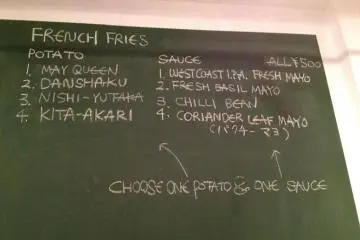 FRENCH FRIES
POTATO
1. MAY QUEEN
2. DANSHAKU
3. NISHI-YUTAKA
4. KITA-AKARI
SAUCE ALL ¥500
1. WESTCOAST I.P.A. FRESH MAYO
2. FRESH BASIL MAYO
3. CHILLI BEAN
4. CORIANDER LEAF MAYO
(パクチーマヨ)
CHOOSE ONE POTATO & ONE SAUCE